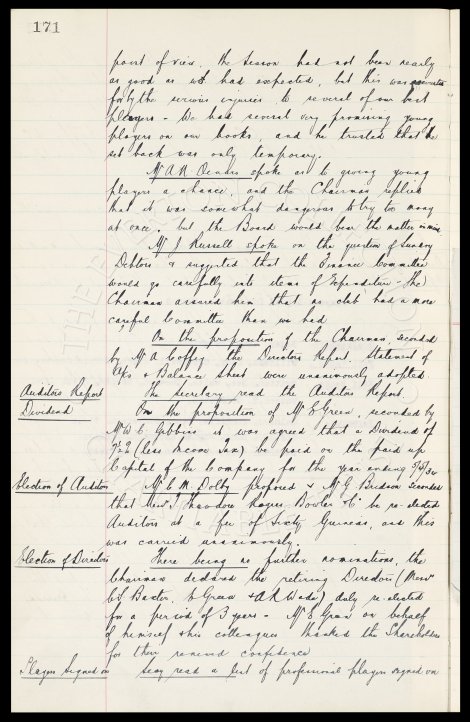 171
point of view, the season had not been nearly
as good as we had expected, but this was accounted
for by the serious injuries to several of our best
players - We had several very promising young
players on our books, and he trusted that the
set back was only temporary.
Mr A R spoke as to giving young
players a chance, and the Chairman replied
that it was somewhat dangerous to try too many
at once, but the Board would bear the matter in mind
Mr J Russell spoke on the question of Sundry
Debtors & suggested that the Finance Committee
would go carefully into items of Expenditure - The
Chairman assured him that no club had a more
careful Committee than we had
On the proposition of the Chairman, seconded
by Mr A Coffey the Directors Report, Statement of
A/cs & Balance Sheet were unanimously adopted
Auditors Report The secretary read the Auditors Report
Dividend On the proposition of Mr E Green, seconded by
Mr W C Gibbins it was agreed that a Dividend of
(less Income Tax) be paid on the paid up
Capital of the Company for the year ending 5/5/34
Election of Auditors Mr C M Dolby proposed & Mr G Bridson seconded
that Messrs Theodore Rogers Bowler & Co be re-elected
Auditors at a fee of Sixty Guineas, and this
was carried unanimously.
Election of Directors There being no further nominations, the
Chairman declared the retiring Directors (Messrs
C S Baxter, E Green & A R Wade) duly re-elected
for a period of 3 years - Mr E Green on behalf
of himself & his colleagues thanked the Shareholders
for their renewed confidence
Players Signed on Secy read a list of professional players signed on